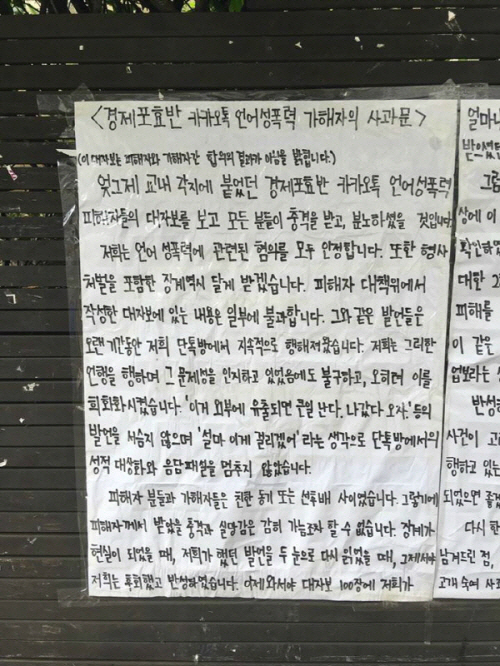 <경제포효반 카카오톡 언어성폭력 가해자의 사과문>
(이 대자보는 피해자와 가해자간 합의의 결과가 아님을 밝힙니다.)
엊그제 교내 각지에 붙었던 경제포효반 카카오톡 언어성폭력
피해자들의 대자보를 보고 모든 분들이 충격을 받고, 분노하셨을 것입니다.
저희는 언어 성폭력에 관련된 혐의를 모두 인정합니다. 또한 형사
처벌을 포함한 징계역시 달게 받겠습니다. 피해자 대책위에서
작성한 대자보에 있는 내용은 일부에 불과합니다. 그와 같은 발언들은
오랜 기간동안 저희 단톡방에서 지속적으로 행해져왔습니다. 저희는 그러한
언행을 행하며 그 문제성을 인지하고 있었음에도 불구하고, 오히려 이를
희화화시켰습니다. '이거 외부에 유출되면 큰일 난다, 나갔다 오자' 등의
발언을 서슴지 않으며 '설마 이게 걸리겠어' 라는 생각으로 단톡방에서의
성적 대상화와 음담패설을 멈추지 않았습니다.
피해자 분들과 가해자들은 친한 동기 또는 선후배 사이였습니다. 그렇기에
피해자께서 받았을 충격과 실망감은 감히 가늠조차 할 수 없습니다. 징계가
현실이 되었을 때, 저희가 했던 발언을 두 눈으로 다시 읽었을 때, 그제서야
저희는 후회했고 반성하였습니다. 이제와서야 대자보 100장에 저희가
얼마나
받으셨
그럼
상에 이
확인하였
대한 2
피해를
이 같은
반성하
사건이 고
행하고 있는
되었으면 좋겠
다시 한
남겨드린 점,
고개 숙여 사